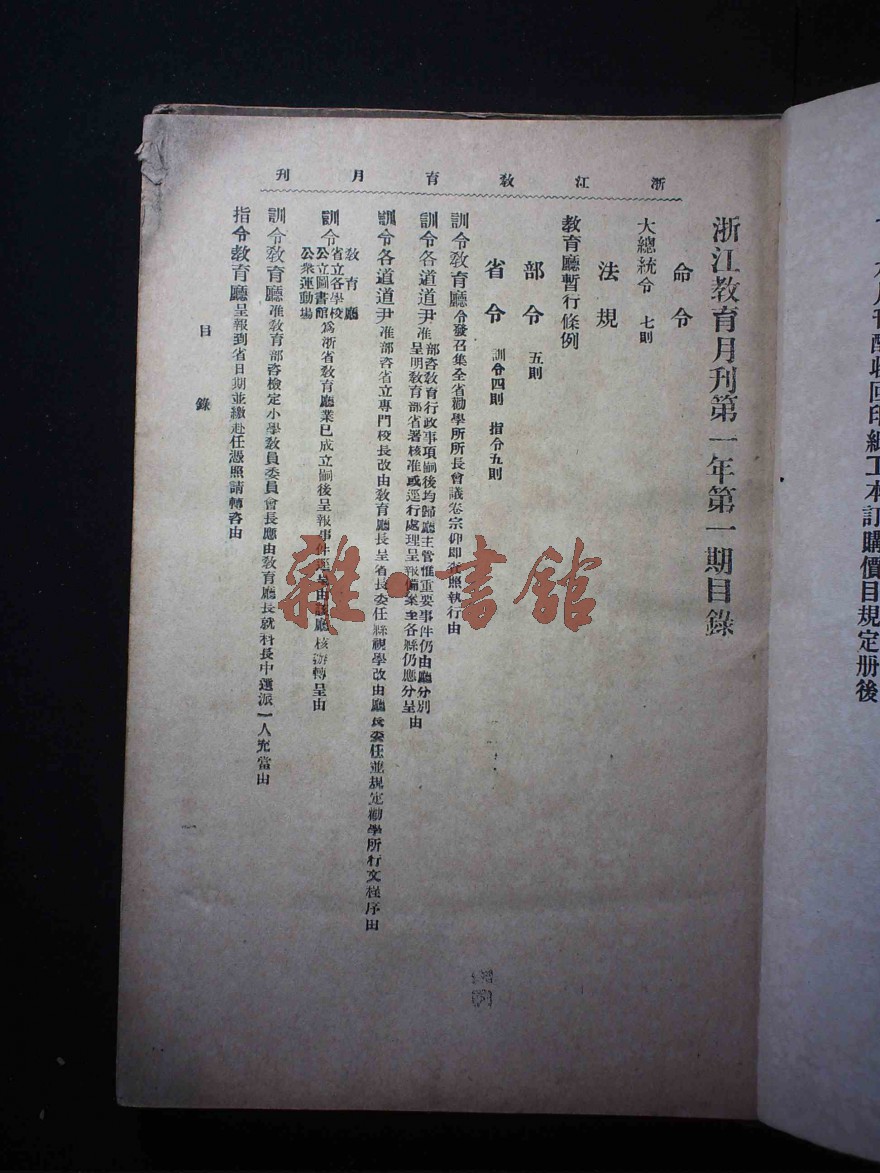 本月刊酌收回印總工本訂購價目規定册後
浙江教育月刊
浙江教育月刊第一年第一期目錄
命令
大總統令 七則
法規
教育廳暫行條例
部令 五則
省令 訓令四則 指令五則
訓令教育廳令發召集全省勸學所所長會議卷宗仰即查照執行由
訓令各道道尹准部咨教育行政事項嗣後均歸廳主管惟重要事件仍由廳分別
呈明教育部省署核准或逕行處理呈報備案至各縣仍應分呈由
訓令各道道尹准部咨省立專門校長改由教育廳長呈省長委任縣視學改由廳長委任並規定勸學所行文程序由
訓令教育廳省立各學校公立圖書館公衆運動場為浙省教育廳業已成立嗣後呈報事件逕呈由該廳核辦轉呈由
訓令教育廳准教育部咨檢定小學教員委員會長應由教育廳長就科長中選派一人充當由
指令教育廳呈報到省日期並繳赴任憑照請轉咨由
目錄
一
雜·書館